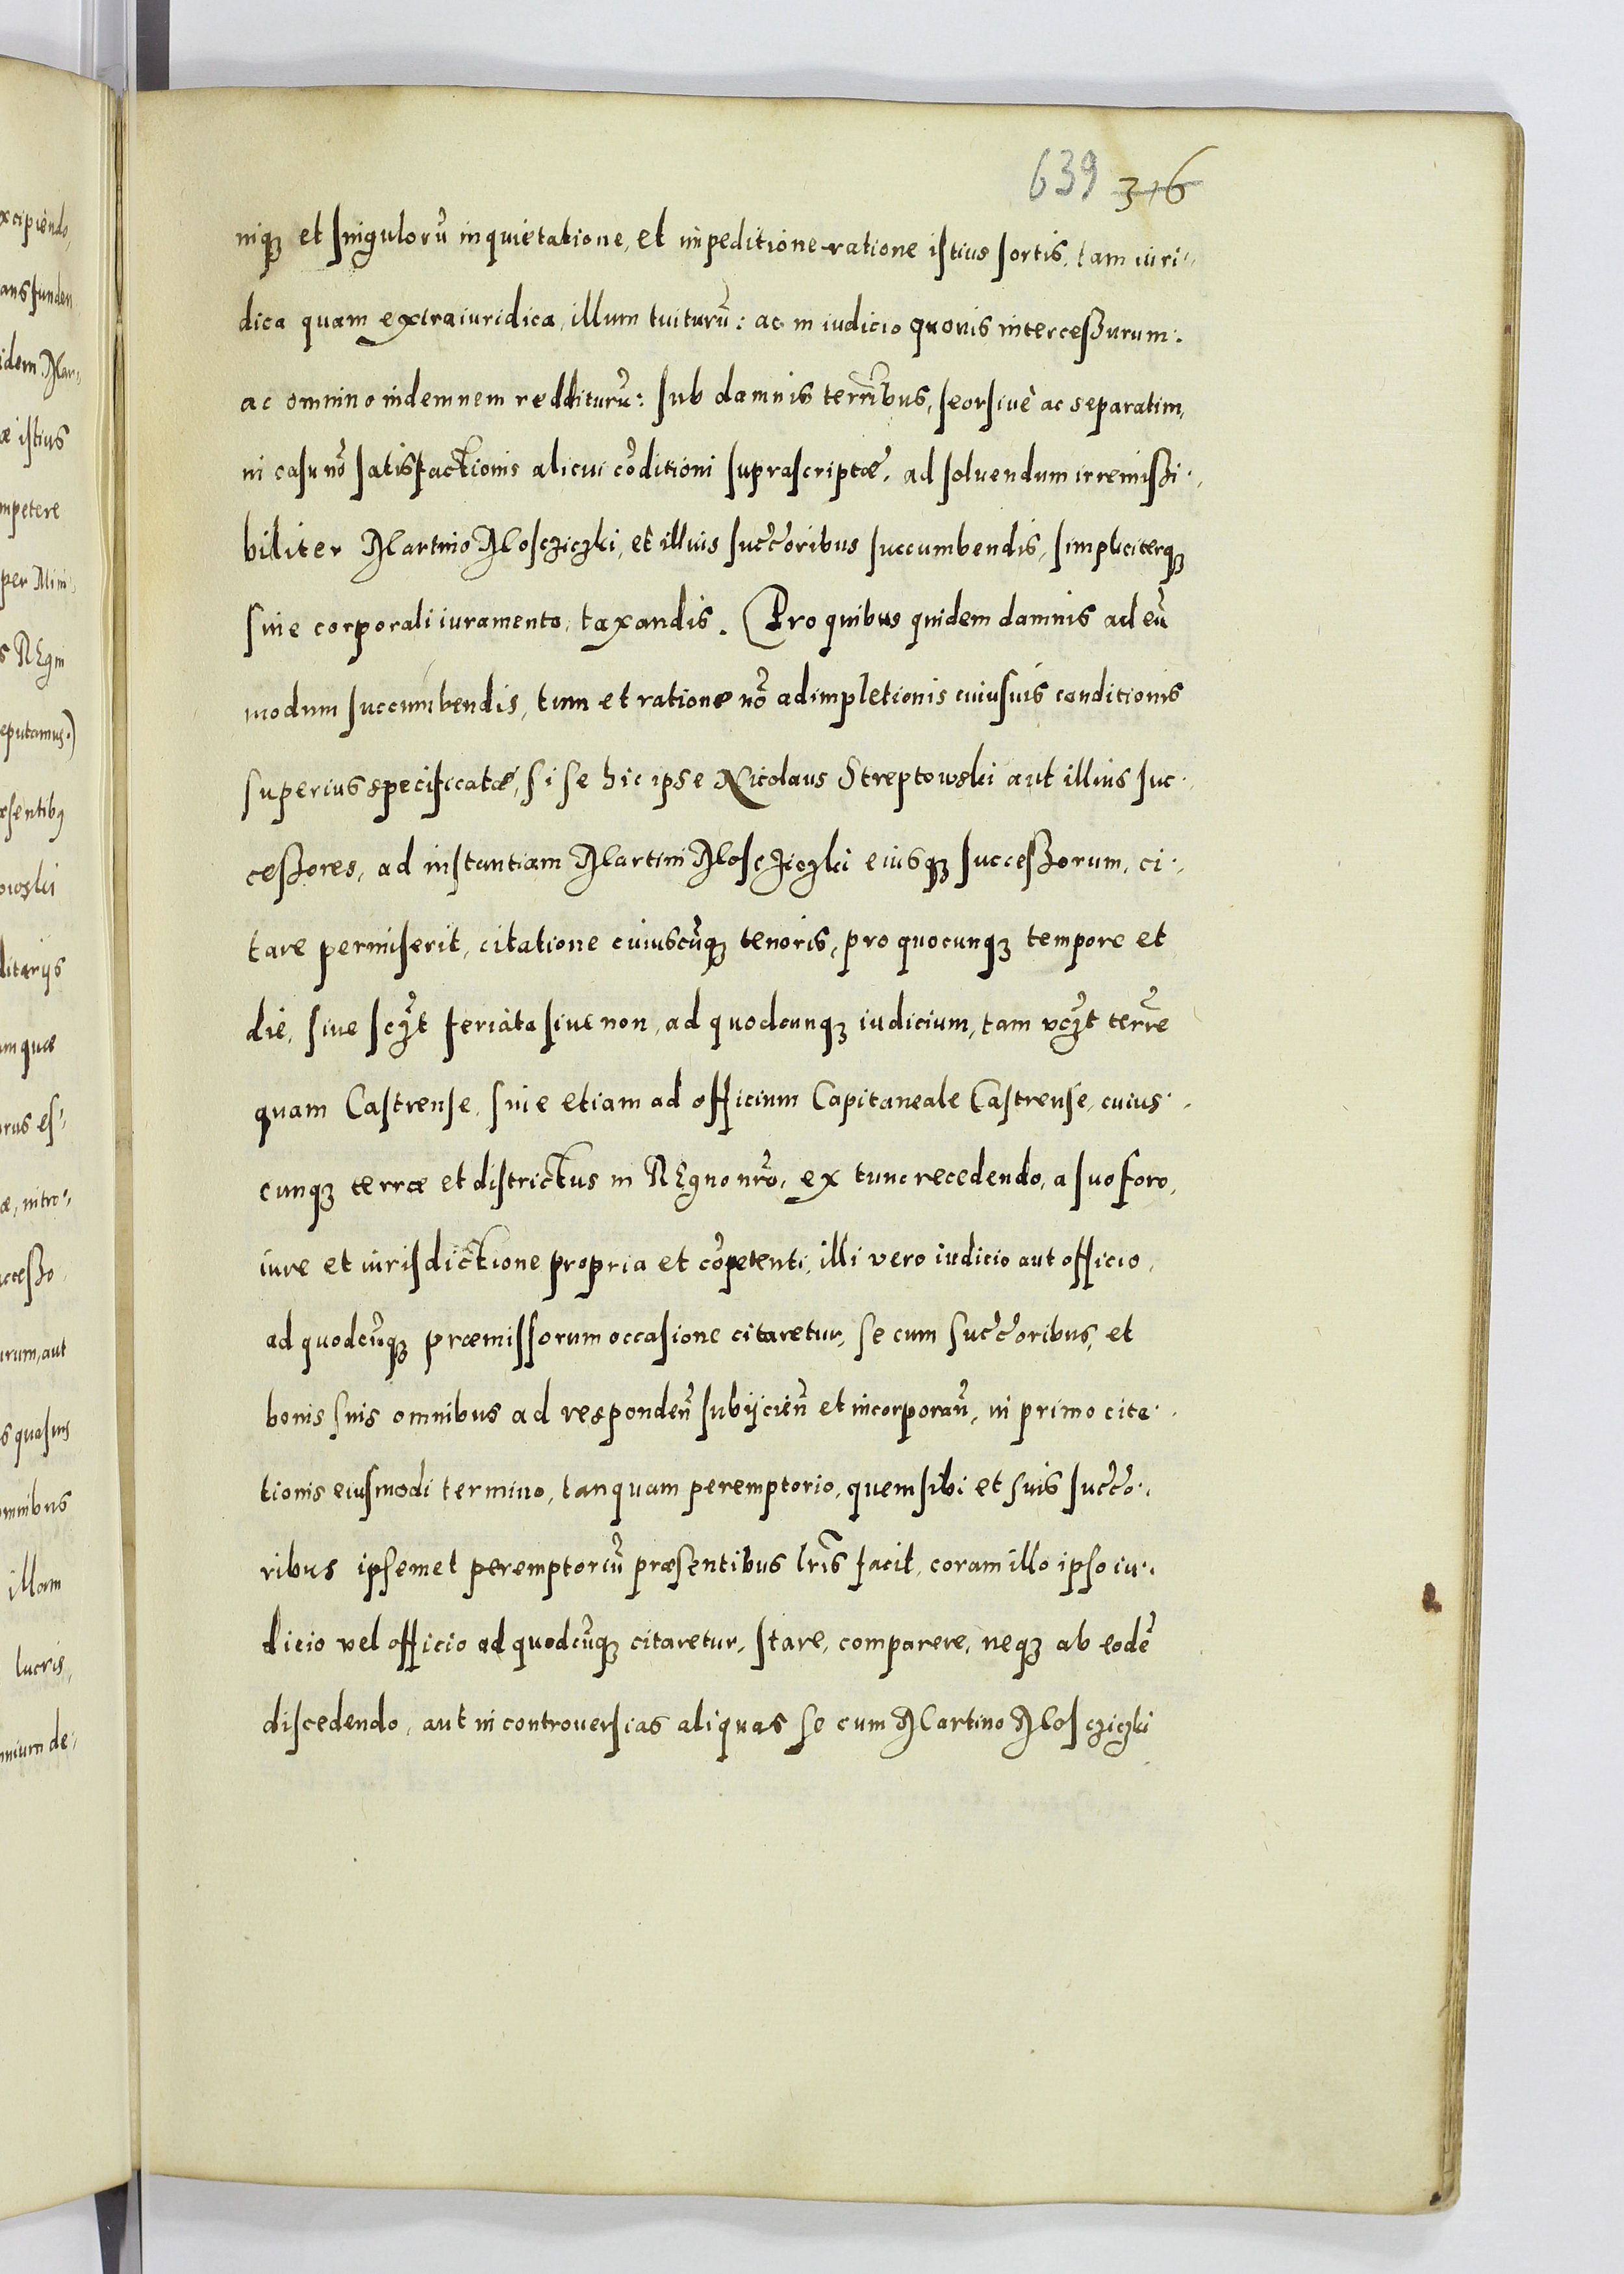 639 316
niq; et singulorũ inquietatione, et impeditione ratione istius sortis, tam iuri-
dica quam extraiuridica, illum tuiturũ: ac in iudicio quovis intercessurum:
ac omnino indemnem redditurũ: sub damnis terrr̃ibus, seorsive ac separatim,
in casu nõ satisfactionis alicui cõditioni suprascriptæ, ad solvendum irremissi-
biliter Martino Moscziczki, et illius succ̃oribus succumbendis, simpliciterq;
sine corporali iuramento, taxandis. Pro quibus quidem damnis ad eũ
modum succumbendis, tum et ratione nõ adimpletionis cuiusvis conditionis
superius specificatæ, si se hic ipse Nicolaus Streptowski aut illius suc-
cessores, ad instantiam Martini Mosczieczki eiusq; successorum, ci-
tare permiserit, citatione cuiuscũq; tenoris, pro quocunq; tempore et
die, sive sc̃ȷt feriata sive non, ad quodcunq; iudicium, tam vc̃ȷt terrr̃e
quam Castrense, sive etiam ad officium Capitaneale Castrense, cuius-
cunq; terræ et districtus in Regno nrõ, ex tunc recedendo, a suo foro,
iure et iurisdictione propria et cõpetenti, illi vero iudicio aut officio,
ad quodcũq; præmissorum occasione citaretur, se cum succ̃oribus, et
bonis suis omnibus ad respondeñ subijcieñ et incorporañ, in primo cita-
tionis eiusmodi termino, tanquam peremptorio, quem sibi et suis succ̃o-
ribus ipsemet peremptoriũ præsentibus lr̃is facit, coram illo ipso iu-
dicio vel officio ad quodcũq; citaretur, stare, comparere, neq; ab eodẽ
discedendo, aut in controversias aliquas se cum Martino Mosczicki